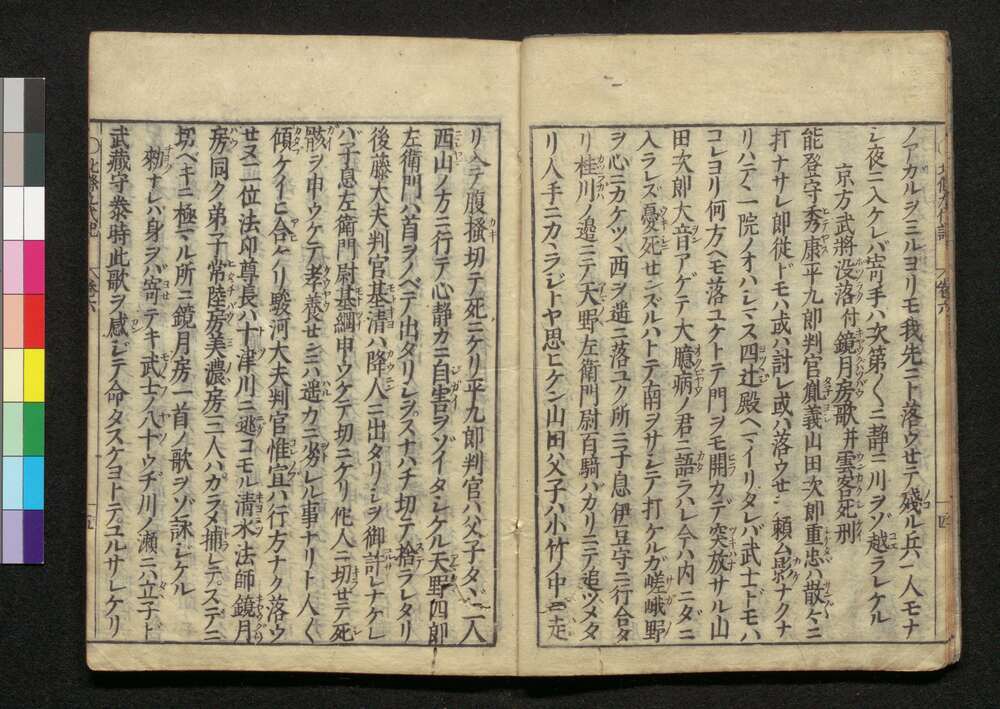 ノアカルヲミルヨリモ我先ニト落ウセテ殘ル兵一人モナ
シ夜ニ入ケレバ寄手ハ次第〱ニ静ニ川ヲゾ越ラレケル
京方武將没落付鏡月房歌并雲客死刑
能登守秀康平九郎判官胤義山田次郎重忠ハ散々ニ
打ナサレ郎從ドモハ或ハ討レ或ハ落ウセシ頼ム影ナクナ
リハテヽ一院ノオハシマス四辻殿ヘマイリタレバ武士ドモハ
コレヨリ何方ヘモ落ユケトテ門ヲモ開カデ突放サル山
田次郎大音アゲテ大臆病ノ君ニ語ラハレ今ハ内ニダニ
入ラレズ憂死センズルハトテ南ヲサシテ打ケルガ嵯峨野
ヲ心ニカケツヽ西ヲ遥ニ落ユク所ニ子息伊豆守ニ行合タ
リ桂川ノ邉ニテ天野左衛門尉百騎ハカリニテ追ツメタ
リ人手ニカヽラジトヤ思ヒケン山田ハ父子ハ小竹ノ中ニ走
リ入テ腹掻切テ死ニケリ平九郎判官ハ父子タヾ二人
西山ノ方ニ行テ心静カニ自害ヲゾイタシケル天野四郎
左衛門ハ首ヲノベテ出タリシヲスナハチ切テ捨ラレタリ
後藤大夫判官基清ハ降人ニ出タリシヲ御許シナケレ
バ子息左衛門尉基綱申ウケテ切ニケリ他人ニ切セテ死
骸ヲ申ウケテ孝養センニハ遥カニ劣レル事ナリト人〱
傾ケイヒ合ヘリ駿河大夫判官惟宣ハ行方ナク落ウ
セヌ二位法印尊長ハ十津川ニ逃コモル清水法師鏡月
房同ク弟子常陸房美濃房三人ハカラメ捕レテスデニ
切ベキニ極マル所ニ鏡月房一首ノ歌ヲゾ詠ジケル
勅ナレバ身ヲバ寄テキ武士ノ八十ウヂ川ノ瀬ニハ立子ド
武藏守泰時此歌ヲ感ジテ命タスケヨトテユルサレケリ